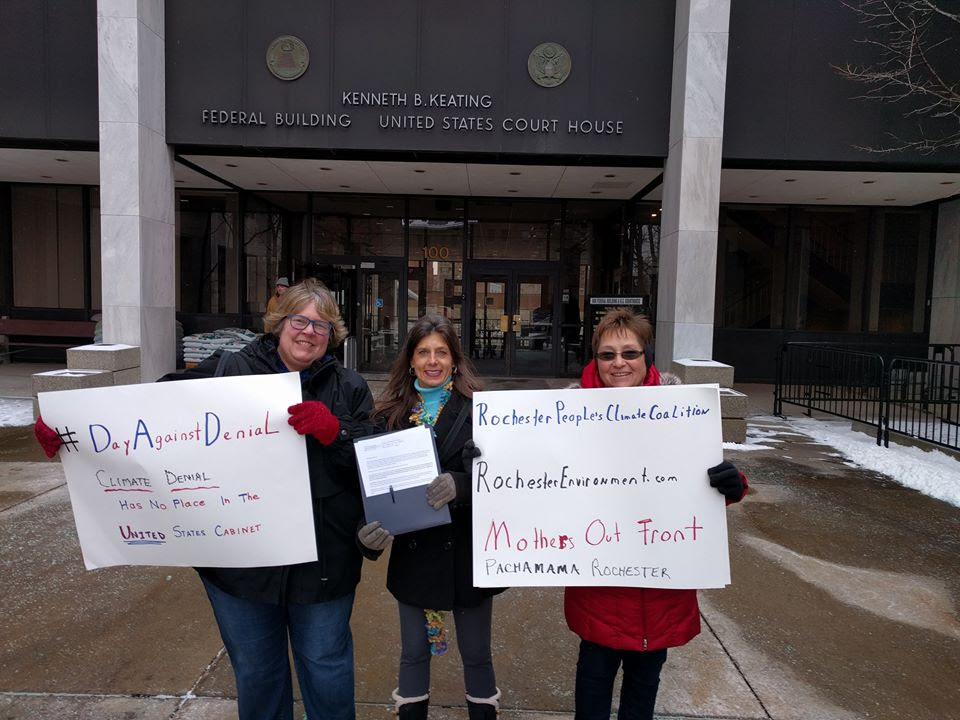 KENNETH B. KEATING
FEDERAL BUILDING UNITED STATES COURT HOUSE
100
# DayAgainstDeniaL
CLIMATE DENIAL
HAS NO PLACE IN THE
UNITED STATES CABINET
ROCHESTER PEOPLE'S CLIMATE COALITION
ROCHESTERENVIRONMENT.COM
MOTHERS OUT FRONT
PACHAMAMA ROCHESTER